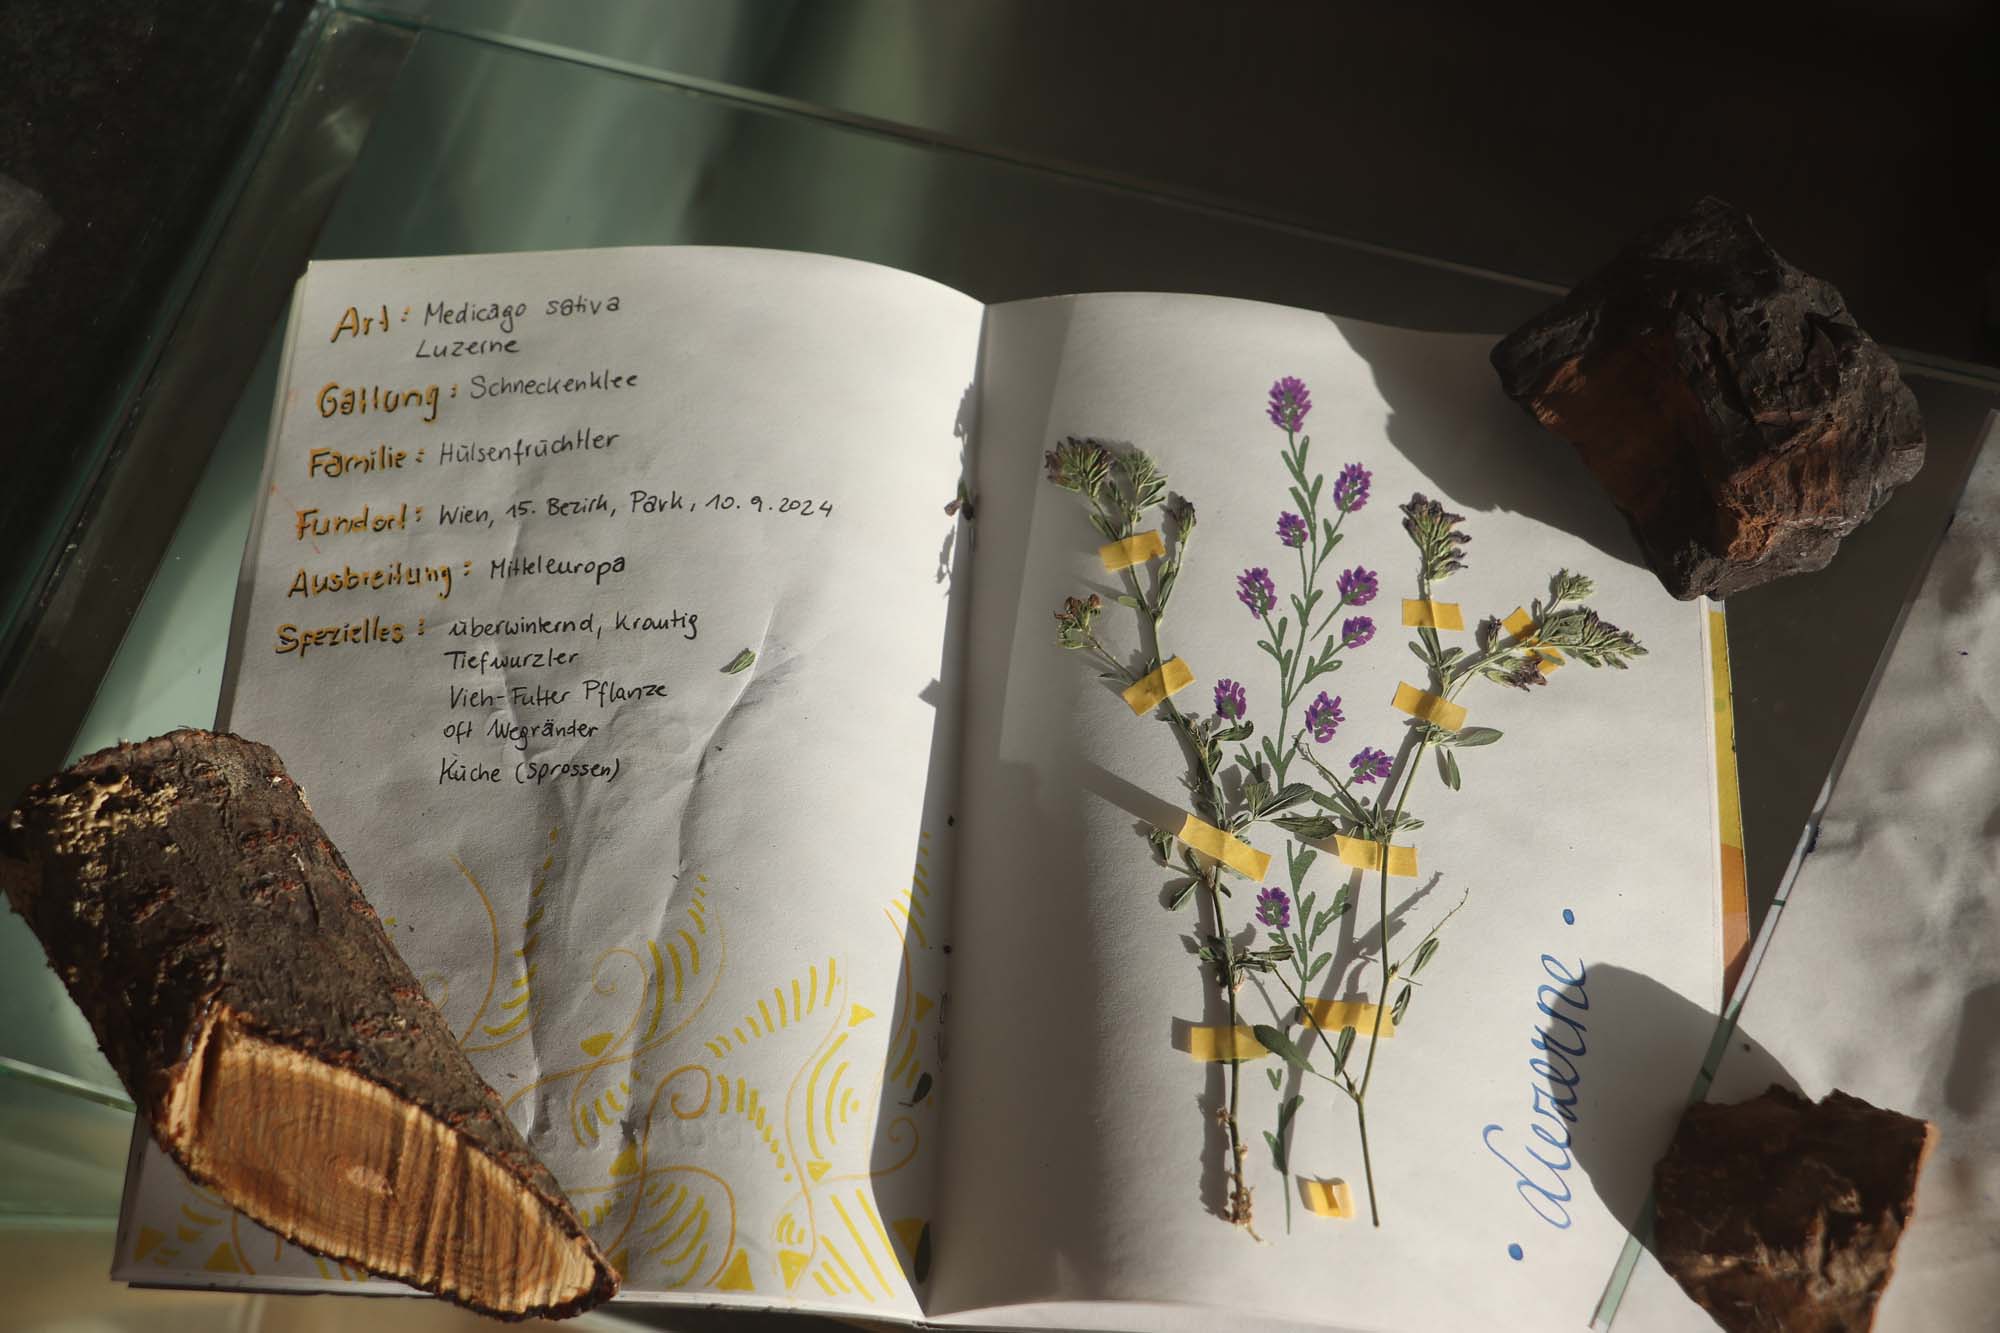 Art: Medicago sativa
Luzerne
Gattung: Schneckenklee
Familie: Hülsenfrüchtler
Fundort: Wien, 15. Bezirk, Park, 10.9.2024
Ausbreitung: Mitteleuropa
Spezielles: überwinternd, krautig
Tiefwurzler
Vieh-Futter Pflanze
oft Wegränder
Küche (Sprossen)
• Luzerne •